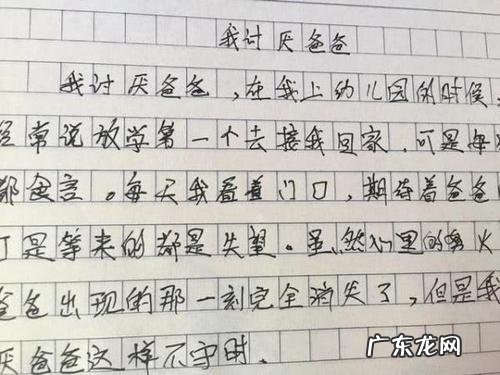 我讨厌爸爸
我讨厌爸爸,在我上幼儿园的时候
经常说放学第一个去接我回家,可是每
都食言。每天我看着门口,期待着爸爸
可是等来的都是失望。虽然心里的火
爸爸出现的那一刻完全消失了,但是我
厌爸爸这样不守时.
广东龙网